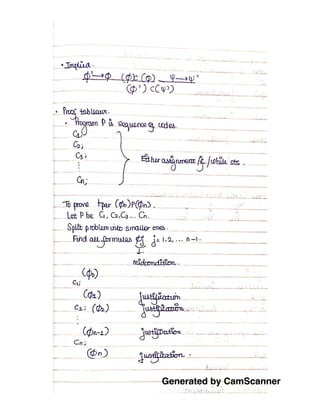 • Implied.
ϕ'→ϕ (ϕ)C(ψ) ψ→ψ'
(ϕ') C(ψ')
• Proof tableaux.
• Program P is sequence of codes.
C1;
C2;
C3;
⋮
Either assignment/if/while sts.
Cn;
To prove ⊢par (ϕ0)P(ϕn).
Let P be C1, C2, C3... Cn.
Split problem into smaller ones.
Find all formulas ϕj j=1,2,... n-1.
↓
midcondition.
(ϕ0)
C1;
(ϕ1) justification
C2; (ϕ2) justification
⋮
(ϕn-1) justification
Cn;
(ϕn) justification.
Generated by CamScanner